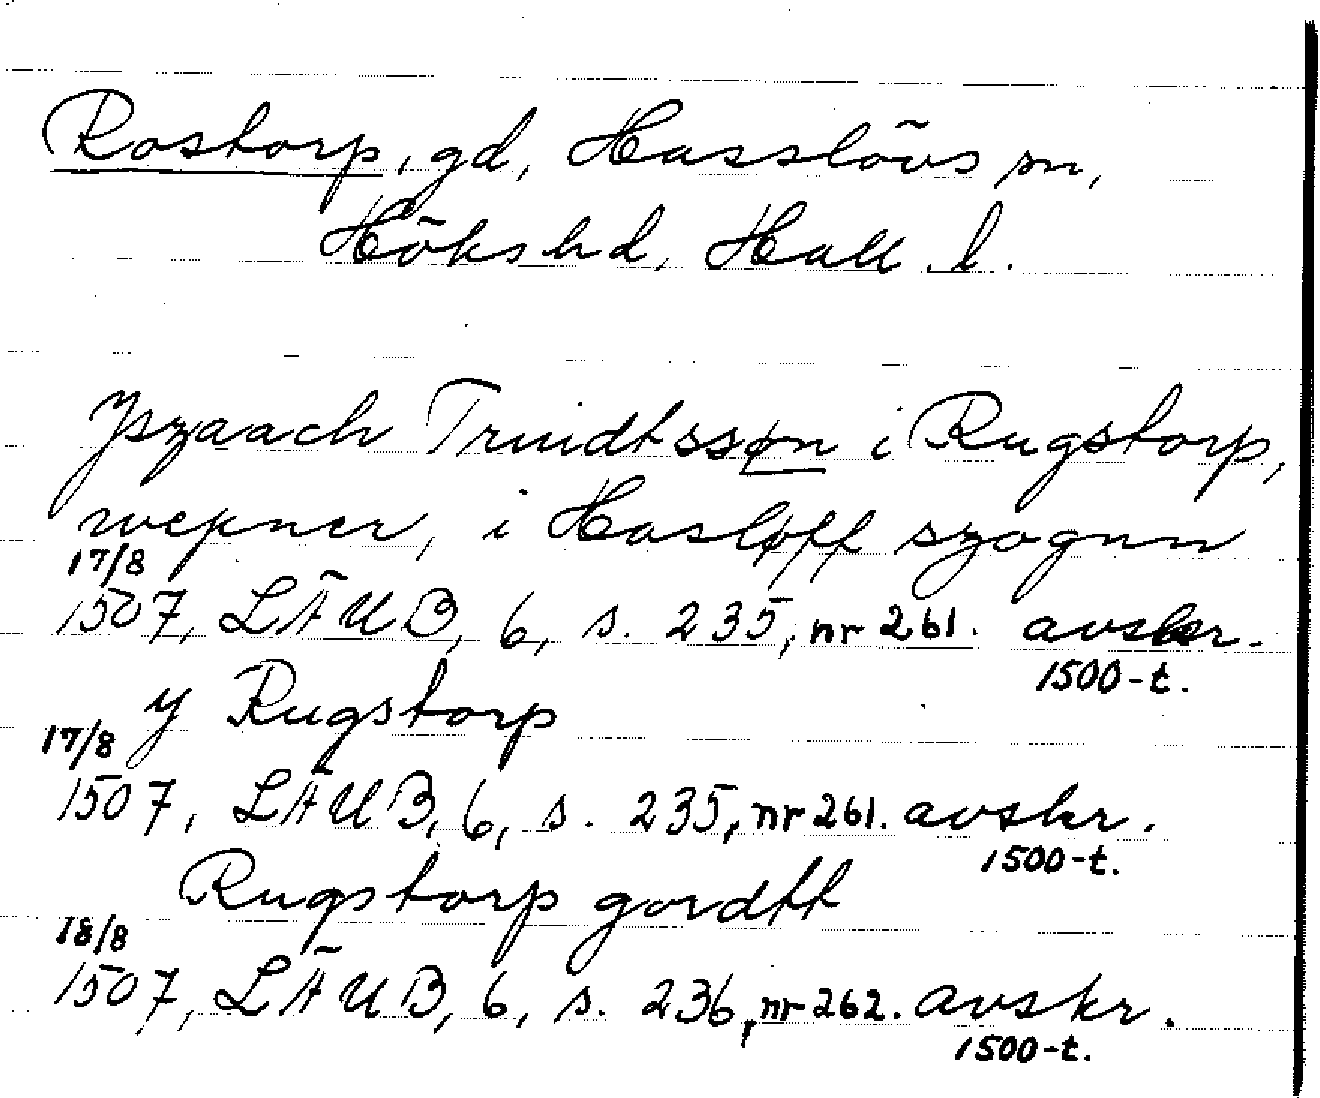 Rostorp, gd, Hasslövs sn,
Höks hd, Hall. l.
Jszaach Trwidtssøn i Rugstorp,
wepner, i Hasløff szognn
17/8
1507, LÄUB, 6, s. 235, nr 261. avskr.
1500-t.
y Rugstorp
17/8
1507, LÄUB, 6, s. 235, nr 261. avskr.
1500-t.
Rugstorp gordtt
18/8
1507, LÄUB, 6, s. 236, nr 262. avskr.
1500-t.